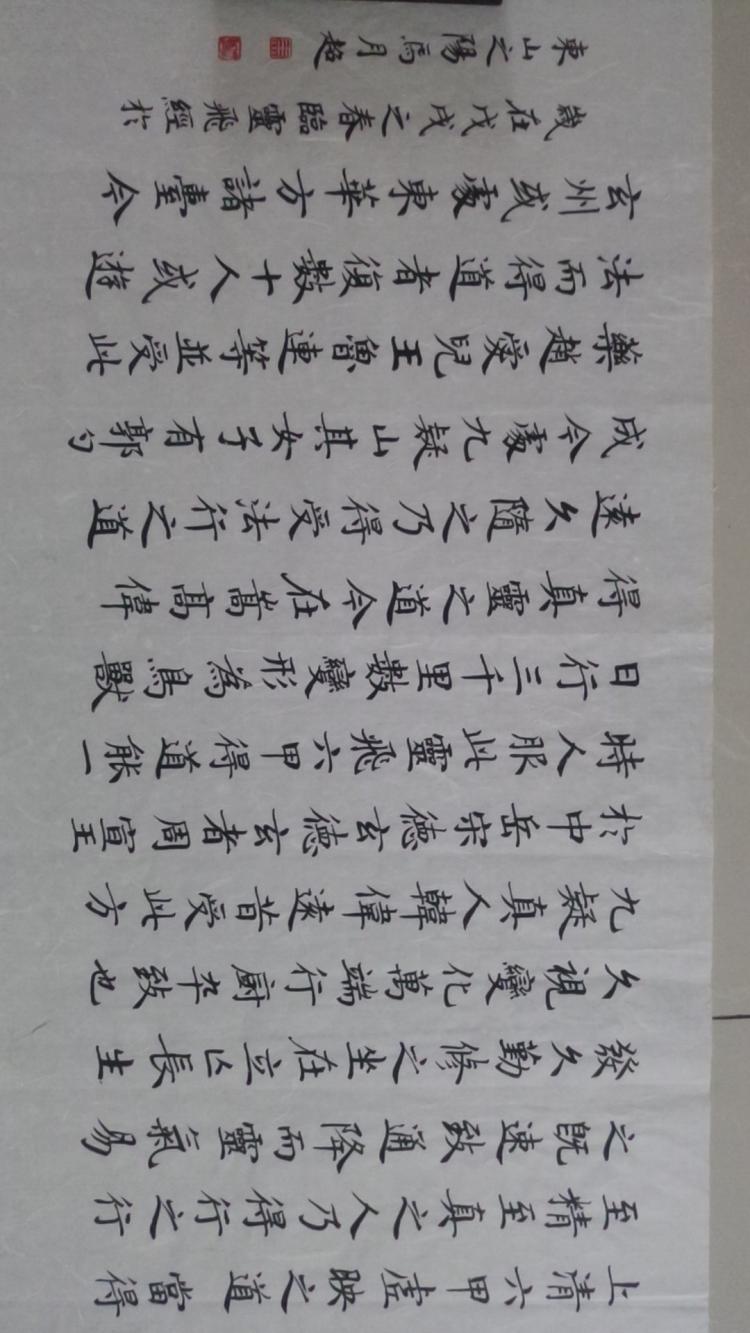 上清六甲虛映之道當得
至精至真之人乃得行之行
之既速致通降而靈氣易
發久勤修之坐在立亾長生
久視變化萬端行廚卒致也
九疑真人韓偉遠昔受此方
於中岳宋德玄德玄者周宣王
時人服此靈飛六甲得道能一
日行三千里數變形為鳥獸
得真靈之道今在嵩高偉
遠久隨之乃得受法行之道
成今處九疑山其女子有郭勺
藥趙愛兒王魯連等並受此
法而得道者復數十人或遊
玄州或處東華方諸臺今
歲在戊戌之春臨靈飛經於
東山之陽馬月超